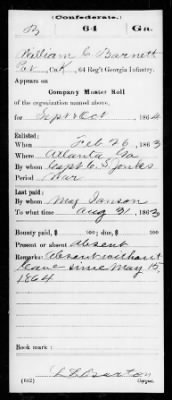 (Confederate.)
B 64 Ga.
William C Barnett
Pvt, Co. K, 64 Reg't Georgia Infantry.
Appears on
Company Muster Roll
of the organization named above,
for Sept & Oct, 1864
Enlisted:
When Feb 26, 1863
Where Atlanta Ga
By whom Capt C. S. Jenks
Period War
Last paid:
By whom Maj Janson
To what time Aug 31, 1863
Bounty paid $ 100; due $ 100
Present or absent Absent
Remarks: Absent without
leave since May 15,
1864
Book mark:
(642) Copyist.